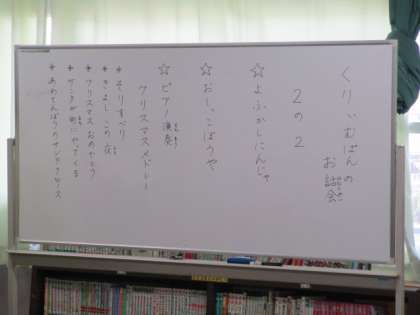 くりいむぱんの
お話会
2の2
☆よふかしにんじゃ
☆おしっこぼうや
☆ピアノ演奏
クリスマスメドレー
＊そりすべり
＊きよしこの夜
＊クリスマスおめでとう
＊サンタが町にやってくる
＊あわてんぼうのサンタクロース